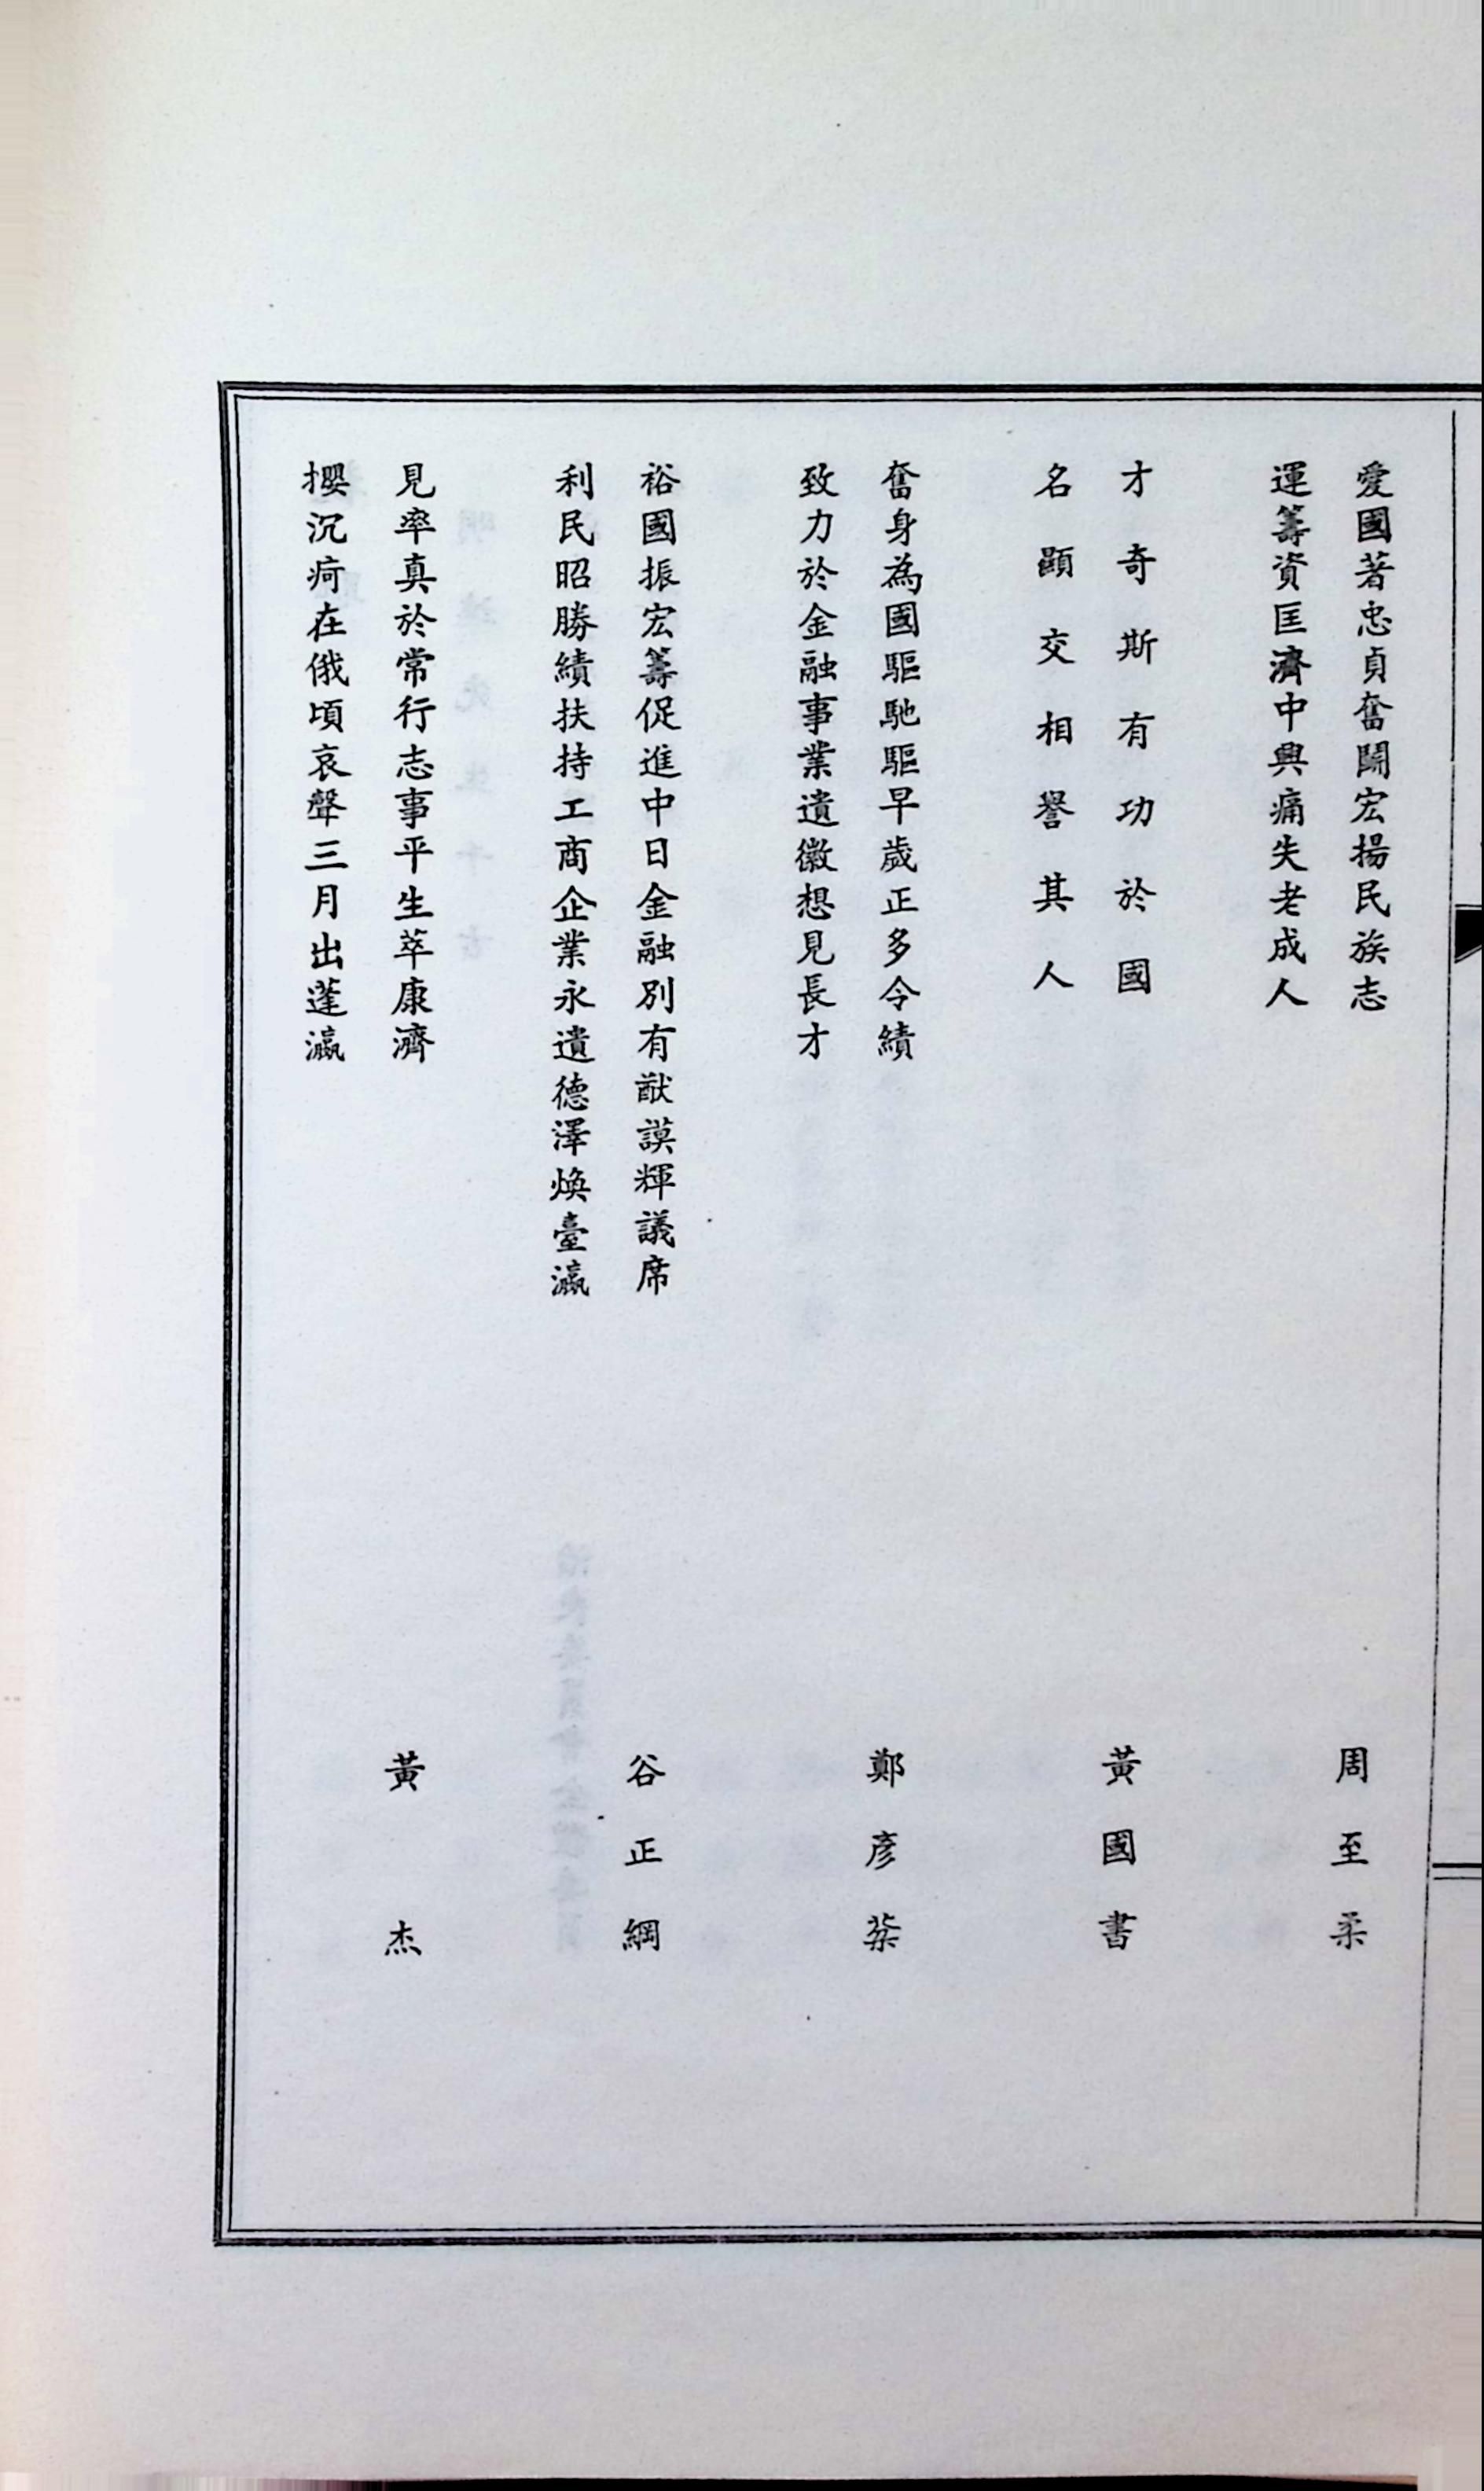 愛國著忠貞奮鬭宏揚民族志
運籌資匡濟中興痛失老成人
周至柔
才奇斯有功於國
名顯交相譽其人
黃國書
奮身為國驅馳驅早歲正多令績
致力於金融事業遺徽想見長才
鄭彥棻
裕國振宏籌促進中日金融別有猷謨輝議席
利民昭勝績扶持工商企業永遺德澤煥臺瀛
谷正綱
見率真於常行志事平生萃康濟
攖沉疴在俄頃哀聲三月出蓬瀛
黃杰